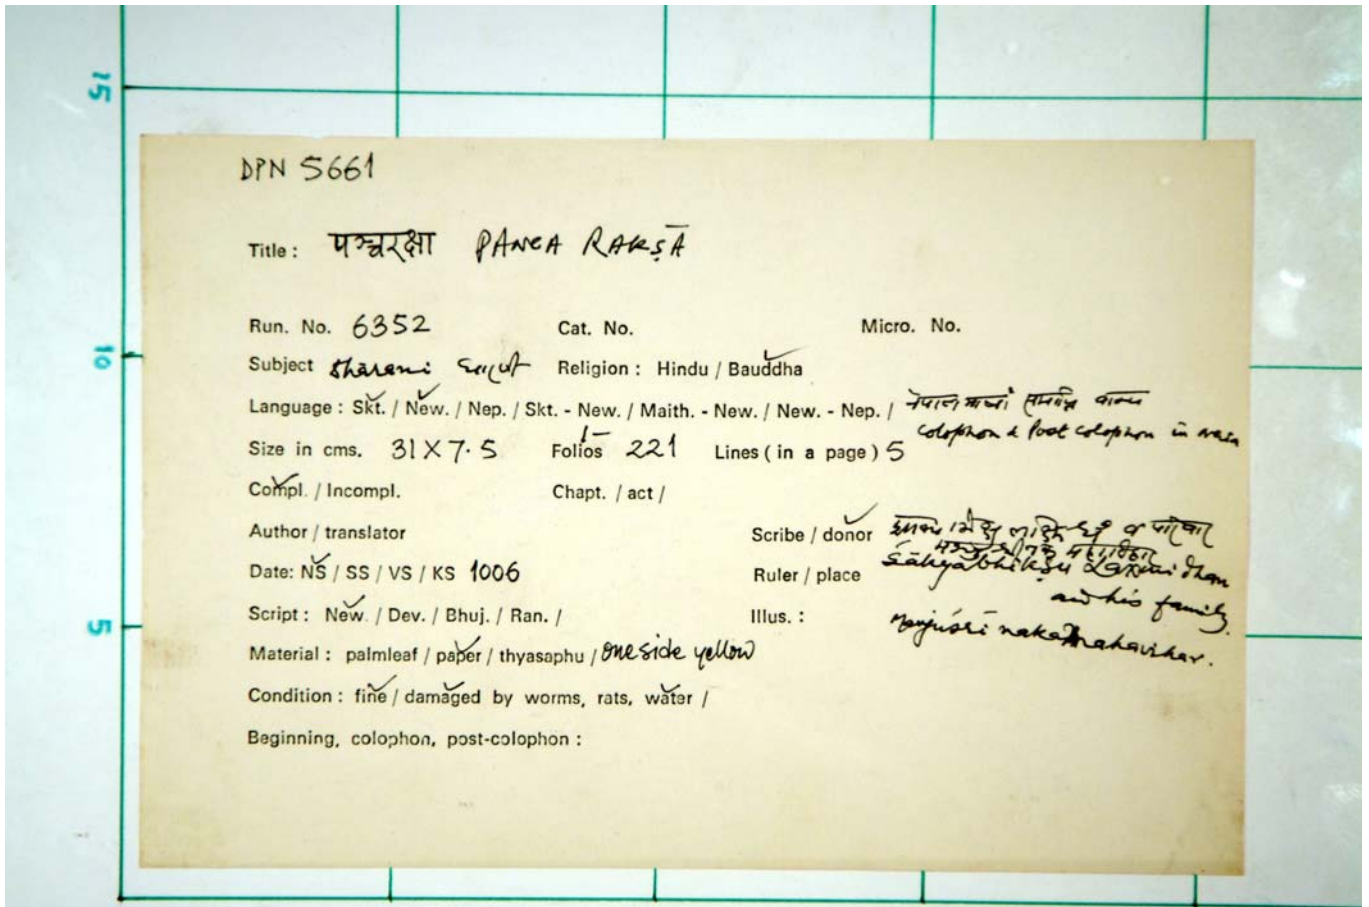 15
10
5
DPN 5661
Title : पञ्चरक्षा PANCA RAKṢĀ
Run. No. 6352 Cat. No. Micro. No.
Subject dharani Religion : Hindu / Bauddha
Language : Skt. / New. / Nep. / Skt. - New. / Maith. - New. / New. - Nep. / नेपाल भाषां
colophon & Post colophon in
Size in cms. 31 X 7.5 Folios 221 Lines ( in a page ) 5
Compl. / Incompl. Chapt. / act /
Author / translator Scribe / donor
Śākyabhikṣu Laxmi dhan
and his family.
Date: NS / SS / VS / KS 1006 Ruler / place
Manjuśri naka Mahavihar.
Script : New. / Dev. / Bhuj. / Ran. / Illus. :
Material : palmleaf / paper / thyasaphu / one side yellow
Condition : fine / damaged by worms, rats, water /
Beginning, colophon, post-colophon :